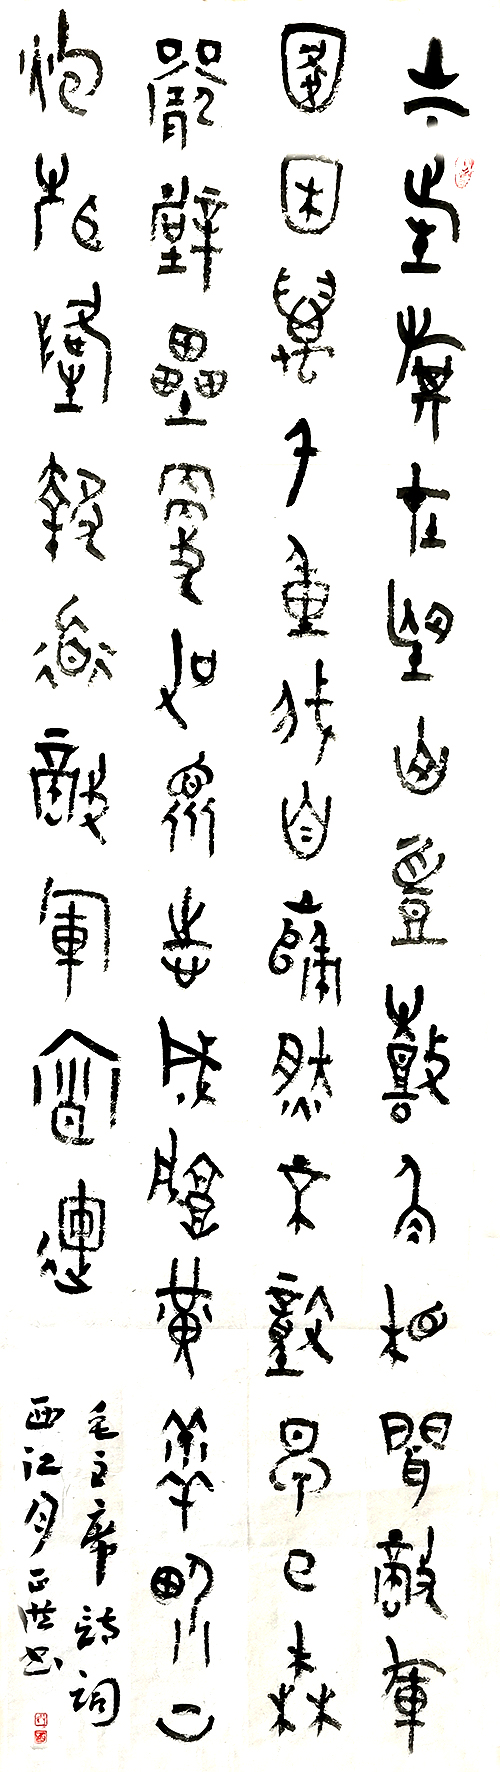 山下旌旗在望山頭鼓角相聞敵軍
圍困萬千重我自巋然不動早已森
嚴壁壘更加眾志成城黃洋界上
炮聲隆報道敵軍宵遁
毛主席詩詞
西江月正洪书